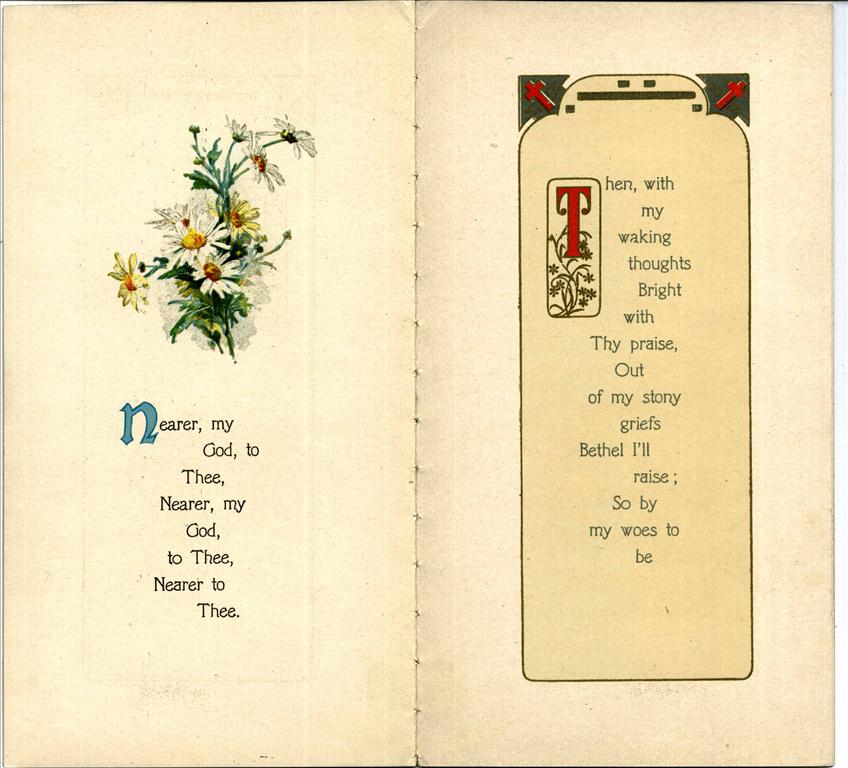 Nearer, my
God, to
Thee,
Nearer, my
God,
to Thee,
Nearer to
Thee.
Then, with
my
waking
thoughts
Bright
with
Thy praise,
Out
of my stony
griefs
Bethel I'll
raise;
So by
my woes to
be